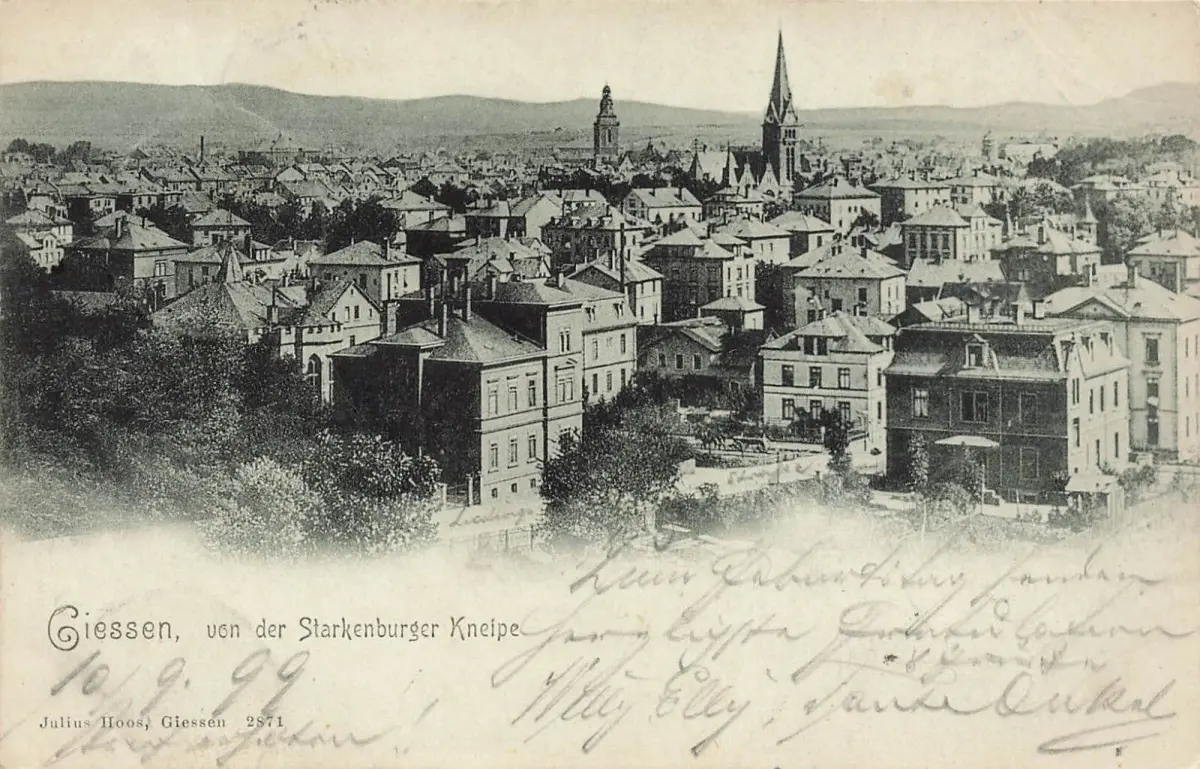 Giessen, von der Starkenburger Kneipe
10/9. 99
Julius Hoos, Giessen 2871
Zum Geburtstag senden
herzlichste Gratulation
Willy Elly, Tante Onkel